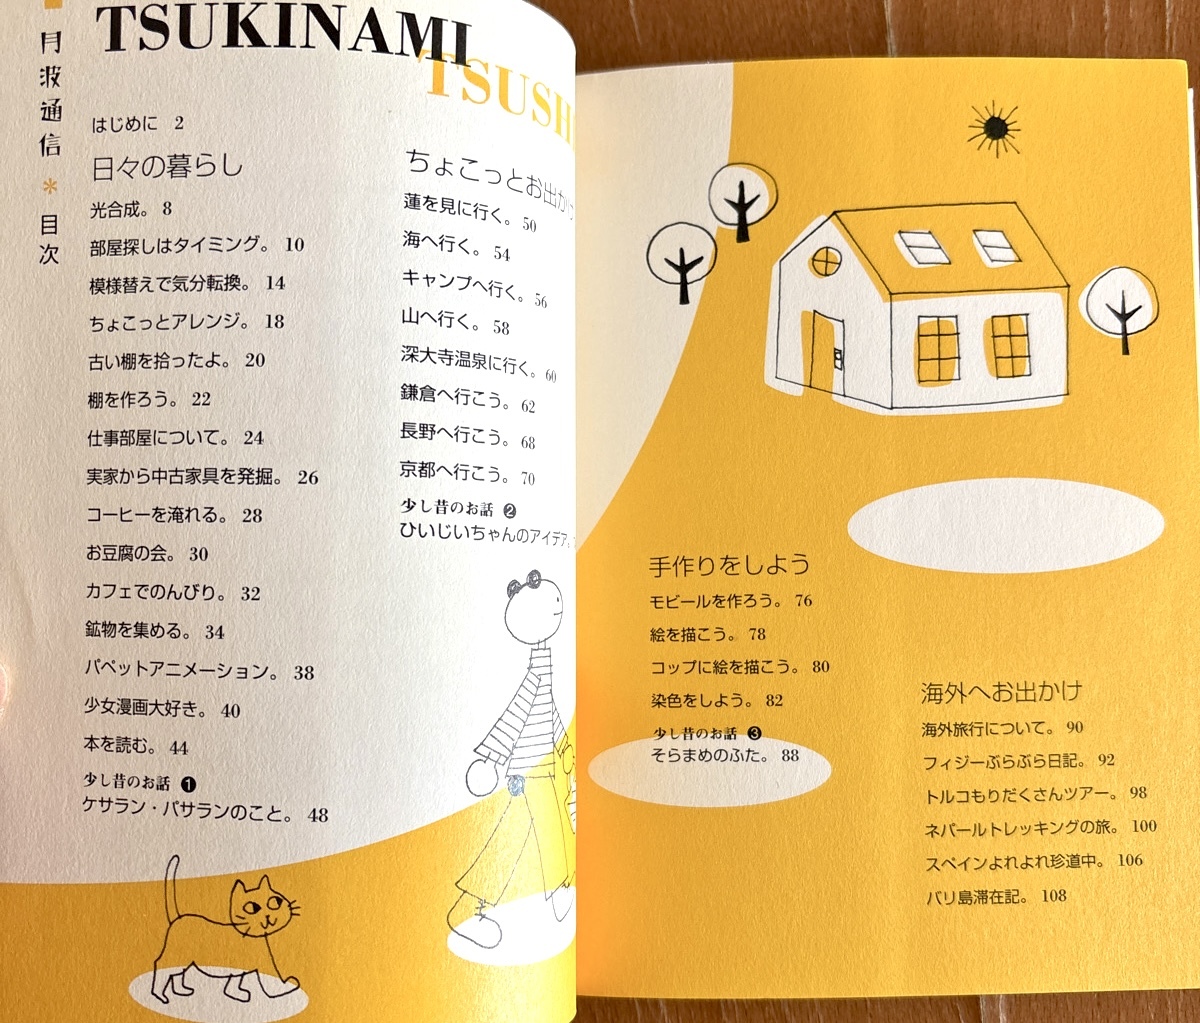 TSUKINAMI
TSUSH
月波通信＊目次
はじめに 2
日々の暮らし
光合成。 8
部屋探しはタイミング。 10
模様替えで気分転換。 14
ちょこっとアレンジ。 18
古い棚を拾ったよ。 20
棚を作ろう。 22
仕事部屋について。 24
実家から中古家具を発掘。 26
コーヒーを淹れる。 28
お豆腐の会。 30
カフェでのんびり。 32
鉱物を集める。 34
パペットアニメーション。 38
少女漫画大好き。 40
本を読む。 44
少し昔のお話 ❶
ケサラン・パサランのこと。 48
ちょこっとお出かけ
蓮を見に行く。 50
海へ行く。 54
キャンプへ行く。 56
山へ行く。 58
深大寺温泉に行く。 60
鎌倉へ行こう。 62
長野へ行こう。 68
京都へ行こう。 70
少し昔のお話 ❷
ひいじいちゃんのアイデア。
手作りをしよう
モビールを作ろう。 76
絵を描こう。 78
コップに絵を描こう。 80
染色をしよう。 82
少し昔のお話 ❸
そらまめのふた。 88
海外へお出かけ
海外旅行について。 90
フィジーぶらぶら日記。 92
トルコもりだくさんツアー。 98
ネパールトレッキングの旅。 100
スペインよれよれ珍道中。 106
バリ島滞在記。 108